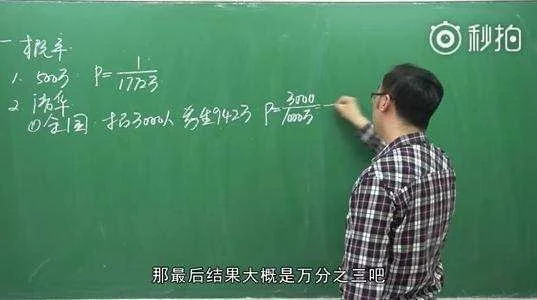 秒拍
一 概率
1. 500万 P=1/1772万
2 清华
①全国. 招3000人 考生942万 P=3000/1000万=
那最后结果大概是万分之三吧